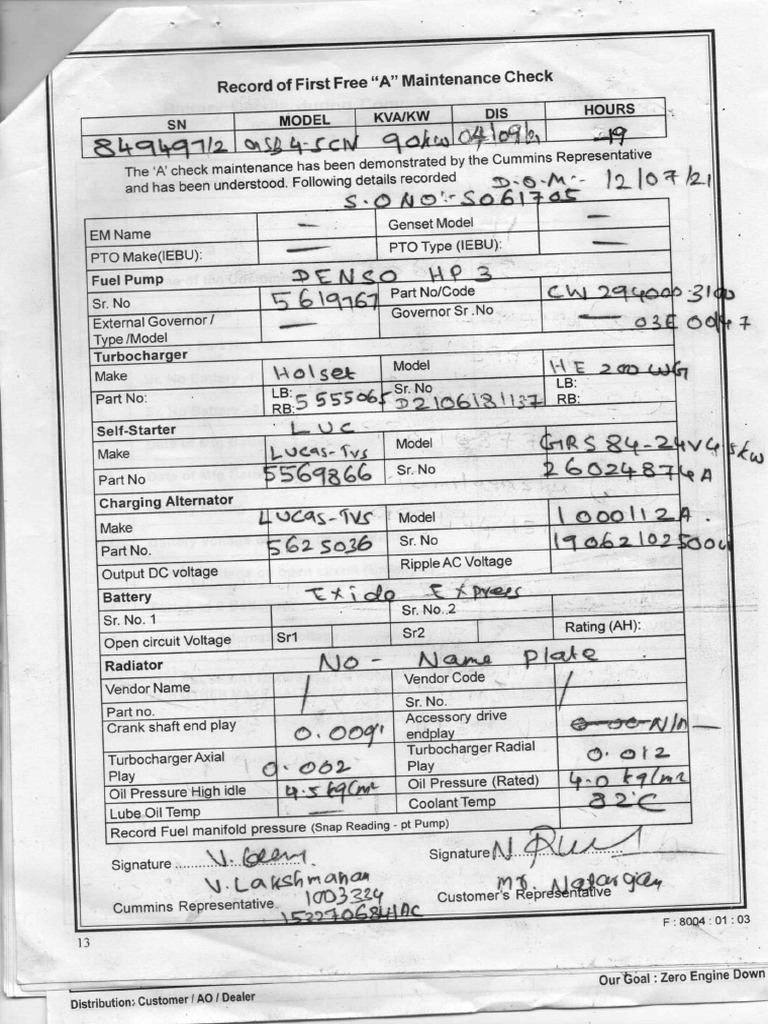 Record of First Free “A” Maintenance Check
SN MODEL KVA/KW DIS HOURS
849497/2 QSB 4.5CN 90kw 04/09/21 19
The 'A' check maintenance has been demonstrated by the Cummins Representative
and has been understood. Following details recorded D.O.M:- 12/07/21
S.O NO:- SO61705
EM Name — Genset Model —
PTO Make(IEBU): — PTO Type (IEBU): —
Fuel Pump DENSO HP3
Sr. No 5619767 Part No/Code CW 294000-3100
External Governor / Type /Model — Governor Sr .No — 03E 0047
Turbocharger
Make Holset Model HE 200 WG
Part No: LB: RB: 5555065 Sr. No D2106181137 LB: RB:
Self-Starter LUC
Make LUCAS-TVS Model GRS 84-24V4.5kw
Part No 5569866 Sr. No 26024874A
Charging Alternator
Make LUCAS-TVS Model 1000112A.
Part No. 5625036 Sr. No 190621025004
Output DC voltage Ripple AC Voltage
Battery Exide Express
Sr. No. 1 Sr. No..2
Open circuit Voltage Sr1 Sr2 Rating (AH):
Radiator NO - Name Plate.
Vendor Name / Vendor Code /
Part no. Sr. No.
Crank shaft end play 0.009' Accessory drive endplay N/A —
Turbocharger Axial Play 0.002 Turbocharger Radial Play 0.012
Oil Pressure High idle 4.5 kg/cm² Oil Pressure (Rated) 4.0 kg/cm²
Lube Oil Temp — Coolant Temp 82°C
Record Fuel manifold pressure (Snap Reading - pt Pump)
Signature Signature
V. Lakshmanan Mr. Natarajan
Cummins Representative 1003334 Customer's Representative
F : 8004 : 01 : 03
13
Our Goal : Zero Engine Down
Distribution: Customer / AO / Dealer